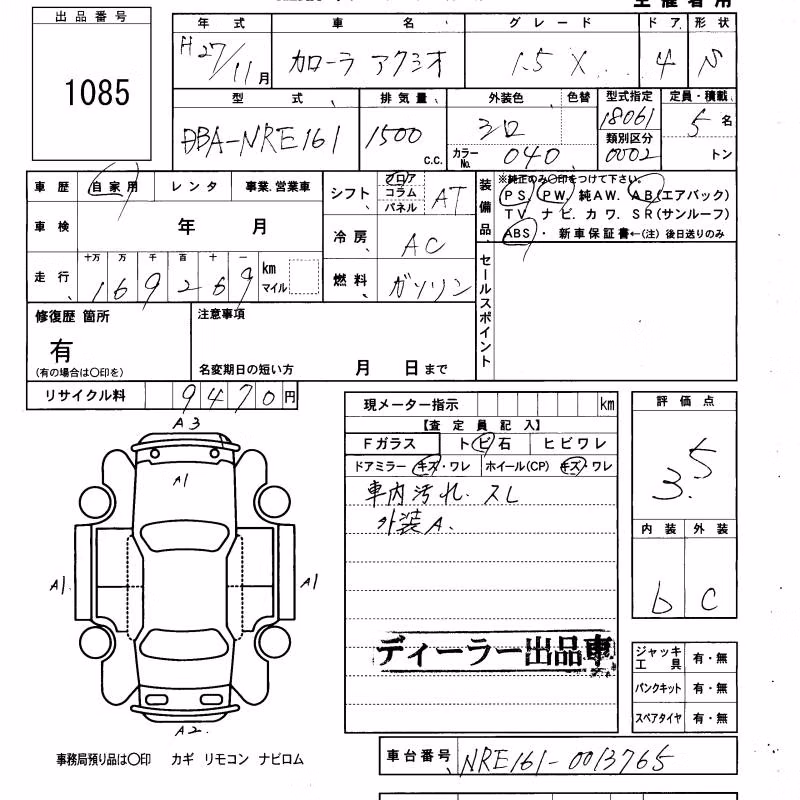 出品番号
1085
年式 車名 グレード ドア 形状
H27/11月 カローラ アクシオ 1.5 X 4 S
型式 排気量 外装色 色替 型式指定 定員・積載
DBA-NRE161 1500 C.C. シロ 18061 5名
カラーNo. 040 類別区分 0002 トン
車歴 自家用 レンタ 事業.営業車
車検 年 月
走行 十万 万 千 百 十 一 km マイル
169269
シフト フロア コラム パネル AT
冷房 AC
燃料 ガソリン
装備品
※純正のみ〇印をつけて下さい。
PS. PW. 純AW. AB(エアバック)
TV. ナビ. カワ. SR(サンルーフ)
ABS ・ 新車保証書←(注) 後日送りのみ
セールスポイント
修復歴 箇所
有
(有の場合は〇印を)
注意事項
名変期日の短い方 月 日まで
リサイクル料 9470円
A3
A1
A1 A1
A2.
事務局預り品は〇印 カギ リモコン ナビロム
現メーター指示 km
【査定員記入】
Fガラス トビ石 ヒビワレ
ドアミラー キズ・ワレ ホイール(CP) キズ・ワレ
車内汚れ. スレ
外装A.
ディーラー出品車
評価点
3.5
内装 外装
b C
ジャッキ工具 有・無
パンクキット 有・無
スペアタイヤ 有・無
車台番号 NRE161-0013765